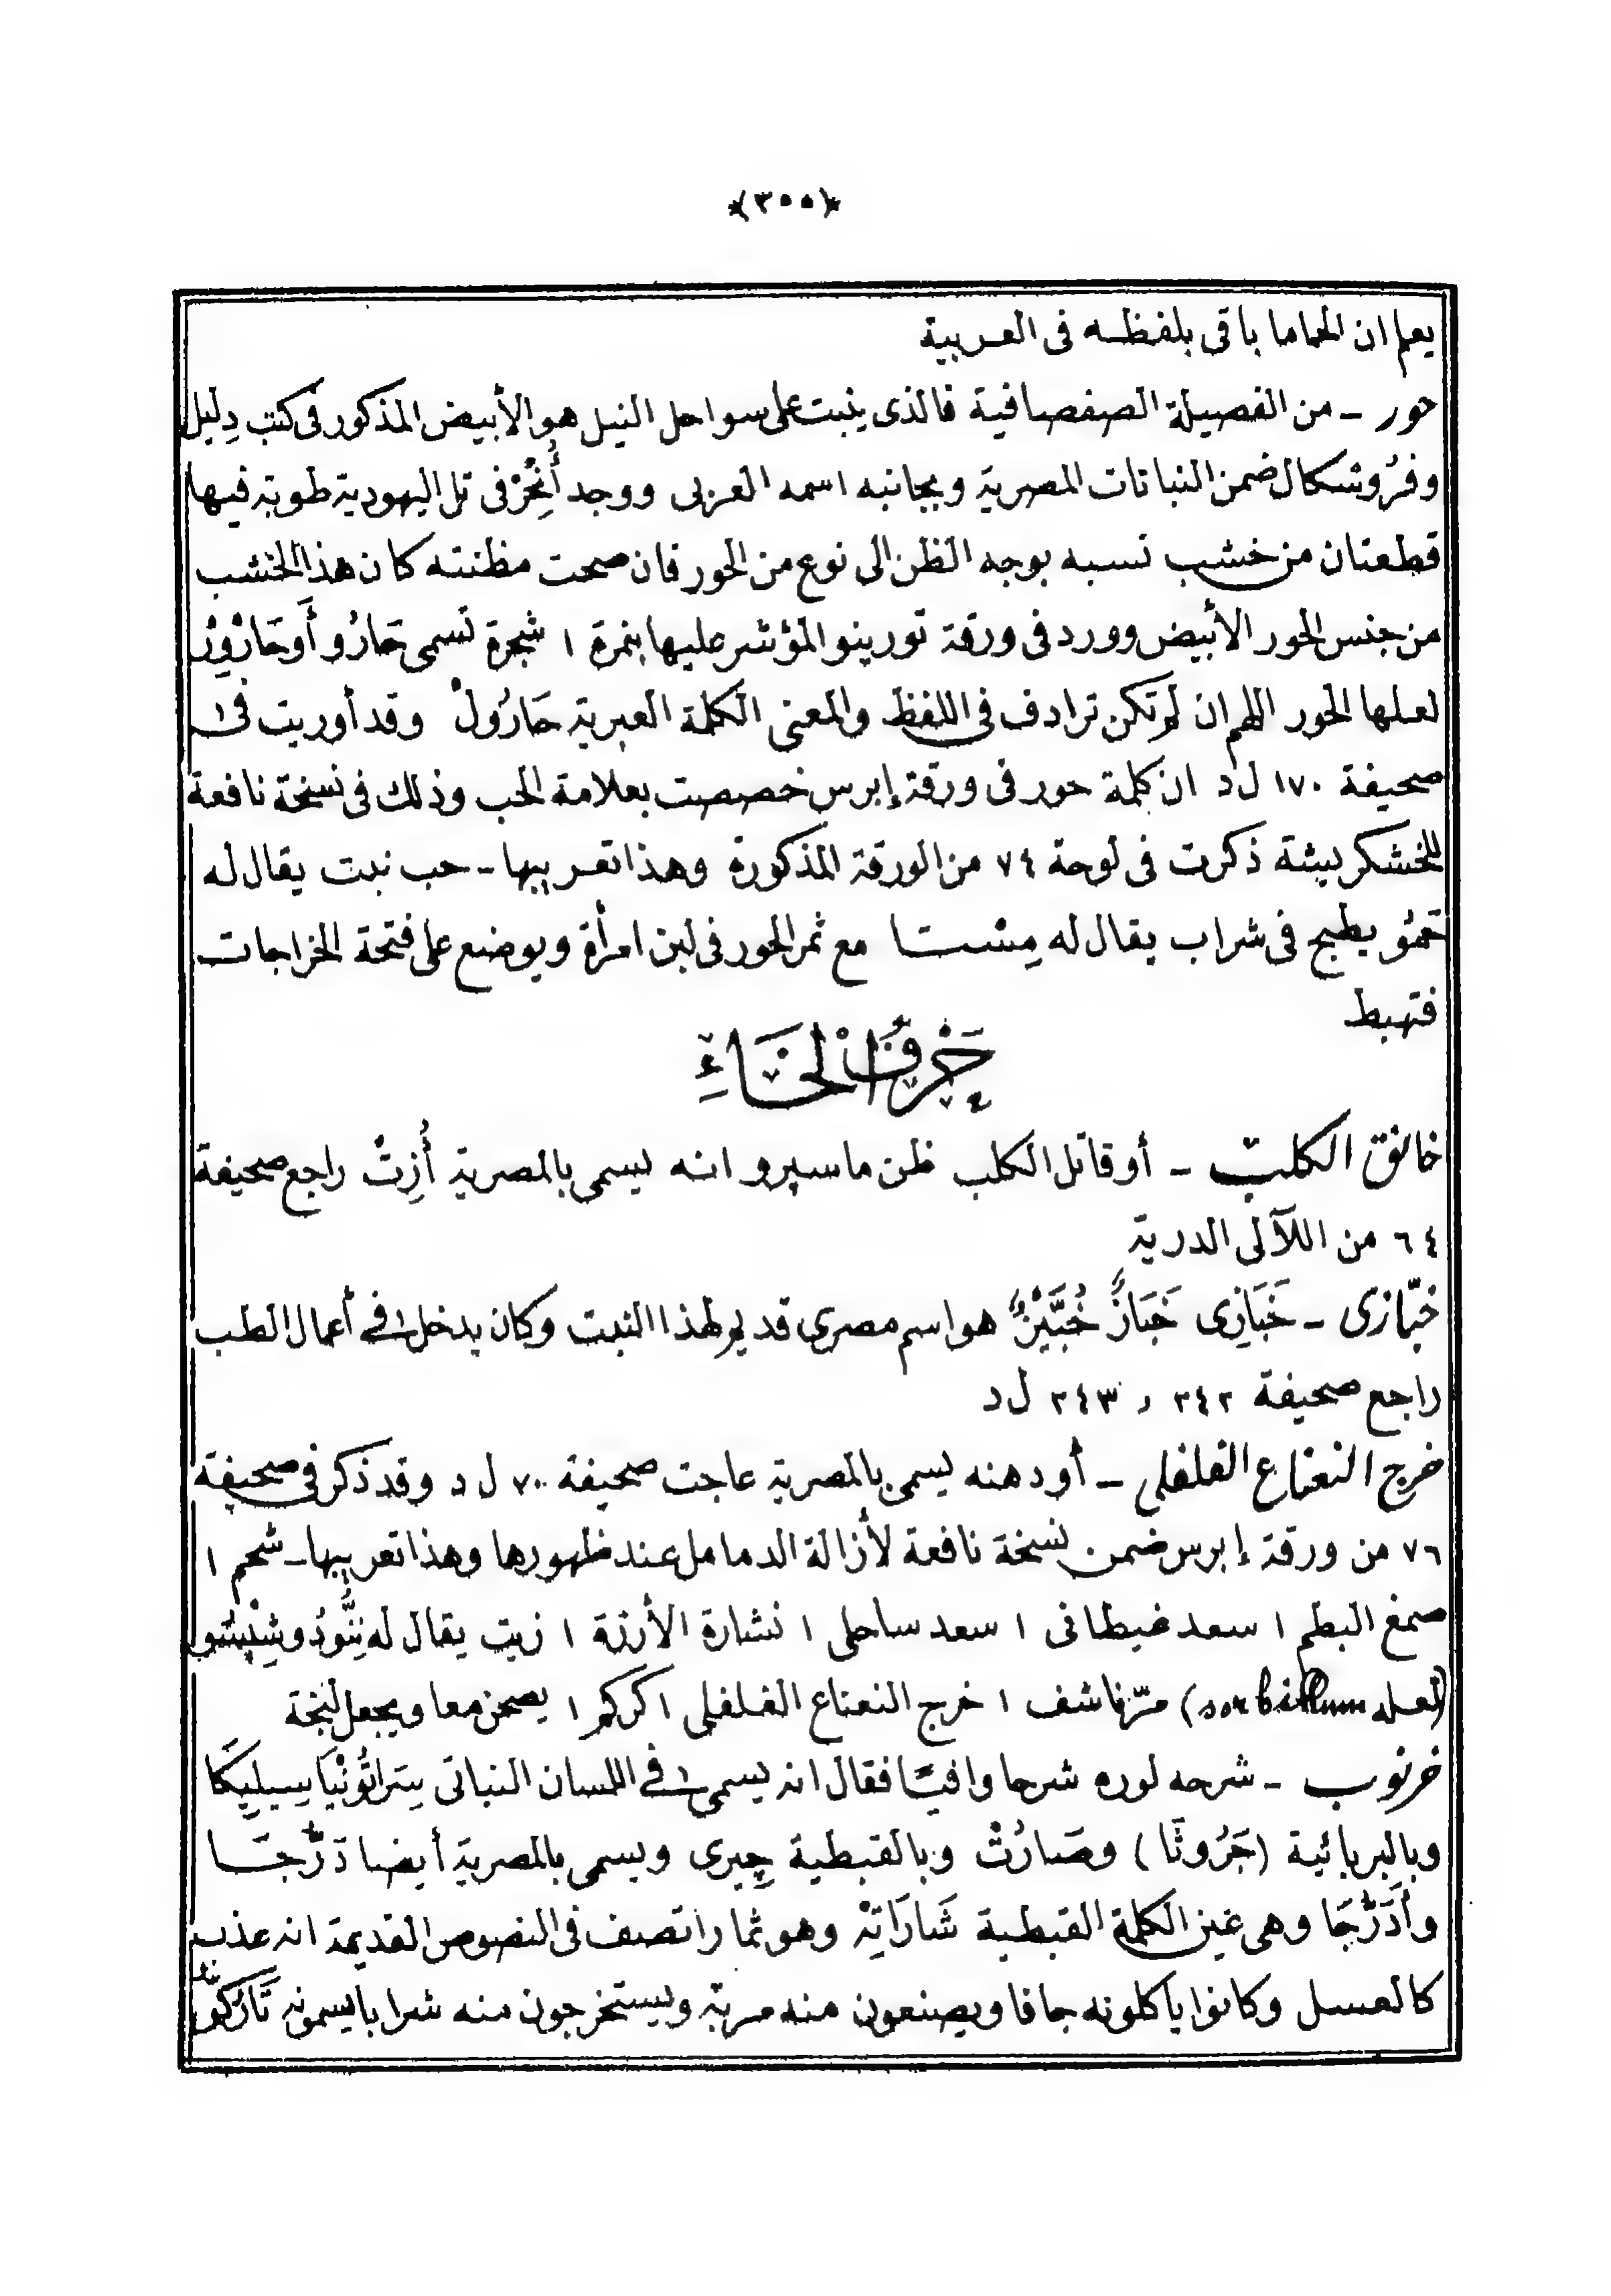 ﴿٣٠٠﴾
يعلم ان الحماما باقى بلفظه فى العربية
حور ـ من الفصيلة الصفصافية فالذى ينبت على سواحل النيل هو الأبيض المذكور فى كتب دِليل
وفرُوشكال ضمن النباتات المصرية وبجانبه اسمه العربى ووجد أُنجُرْ فى تل اليهودية طوبة فيها
قطعتان من خشب نسبه بوجه الظن الى نوع من الحور فان صحت مظنته كان هذا الخشب
من جنس الحور الأبيض وورد فى ورقة تورينو المؤشر عليها بنمرة ١ شجرة تسمى حَارُو أَوحَارُورْ
لعلها الحور اللهم ان لم تكن ترادف فى اللفظ والمعنى الكلمة العبرية حَارُولْ وقد أوريت فى
صحيفة ١٧٠ ل د ان كلمة حور فى ورقة إبرس خصصت بعلامة الحب وذلك فى نسخة نافعة
للخشكريشة ذكرت فى لوحة ٧٤ من الورقة المذكورة وهذا تعريبها ـ حب نبت يقال له
حَمُو يطبخ فى شراب يقال له مِسْتا مع ثمر الحور فى لبن امرأة ويوضع على فتحة الخراجات
فتهبط
حَرْفُ الْخَاءِ
خانق الكلب ـ أو قاتل الكلب ظن ماسپرو انه يسمى بالمصرية أُزِتْ راجع صحيفة
٦٤ من اللآلى الدرية
خبّازى ـ خَبَازِى خَبَازٌ خُبَّيْزٌ هو اسم مصرى قديم لهذا النبت وكان يدخل فى أعمال الطب
راجع صحيفة ٢٤٢ و ٢٤٣ ل د
خرج النعناع الفلفلى ـ أو دهنه يسمى بالمصرية عاجت صحيفة ٧٠ ل د وقد ذكر فى صحيفة
٧٦ من ورقة إبرس ضمن نسخة نافعة لأزالة الدمامل عند ظهورها وهذا تعريبها ـ شحم ١
صمغ البطم ١ سعد غيطانى ١ سعد ساحلى ١ نشارة الأرزة ١ زيت يقال له
(لعله) مرّ ناشف ١ خرج النعناع الفلفلى ١ كركم ١ يصحن معا ويجعل لبخة
خرنوب ـ شرحه لوره شرحا وافيًا فقال انه يسمى فى اللسان النباتى سِرَاتُونْيَا سِيلِيكَا
وبالبربائية (جَرُوتَا) وصَارُتْ وبالقبطية چيرى ويسمى بالمصرية أيضا دَرْجَا
وأَدَرْجَا وهى عين الكلمة القبطية شَارَاتِهْ وهو ثمار اتصف فى النصوص القديمة انه عذب
كالعسل وكانوا ياكلونه جافا ويصنعون منه مربة ويستخرجون منه شرابا يسمونه